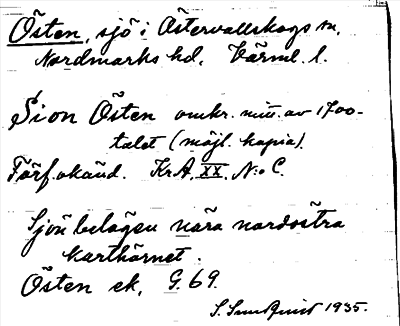 Östen, sjö i Östervallskogs sn,
Nordmarks hd, Värml. l.
Sion Östen omkr. mitt. av 1700-
talet (möjl. kopia).
Förf. okänd. KrA, XX, N:o C.
Sjön belägen nära nordöstra
karthörnet.
Östen ek. G. 69.
S. Sundqvist 1935.